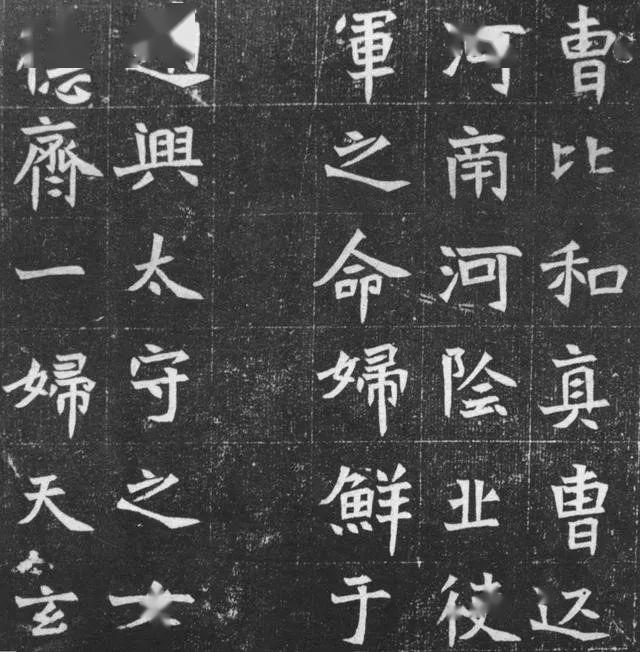 曹比和真曹
河南河陰北
軍之命婦鮮于
興太守之女
齊一婦天玄